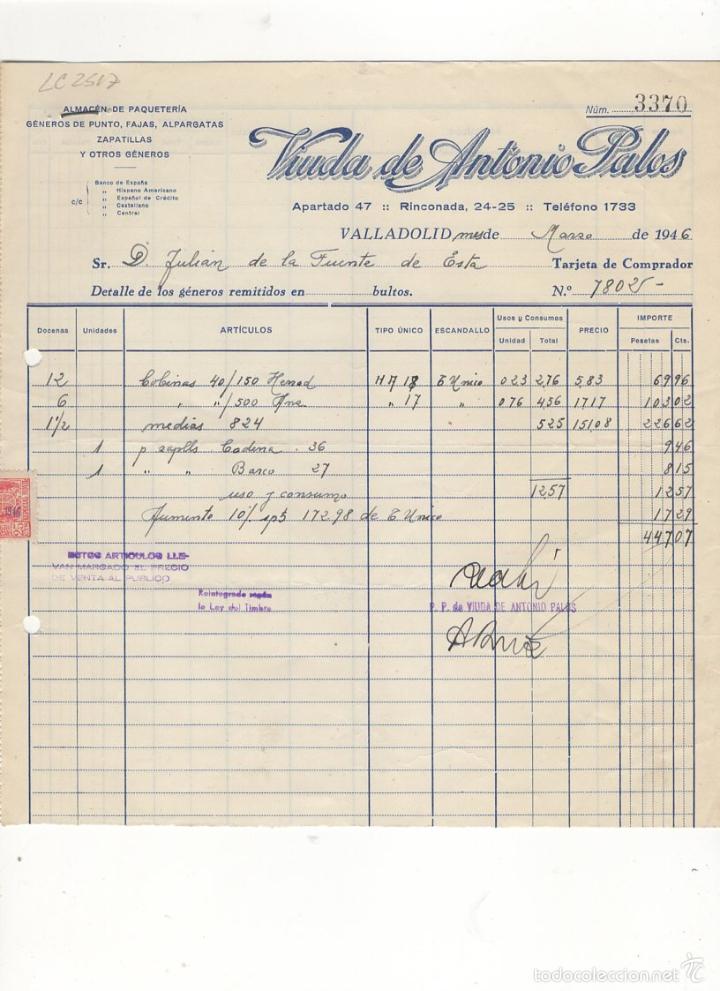 LC 2517
ALMACÉN DE PAQUETERÍA
GÉNEROS DE PUNTO, FAJAS, ALPARGATAS
ZAPATILLAS
Y OTROS GÉNEROS
Núm. 3370
Viuda de Antonio Palos
c/c
Banco de España
„ Hispano Americano
„ Español de Crédito
„ Castellano
„ Central
Apartado 47 :: Rinconada, 24-25 :: Teléfono 1733
VALLADOLID mes de Marzo de 1946
Sr. D. Julián de la Fuente de Esta Tarjeta de Comprador
Detalle de los géneros remitidos en bultos. N.º 78025-
Docenas Unidades ARTÍCULOS TIPO ÚNICO ESCANDALLO Usos y Consumos Unidad Total PRECIO IMPORTE Pesetas Cts.
12 Cobinas 40/150 H 17 18 T Unico 0 23 2,76 5,83 69 96
6 „ „/500 „ 17 „ 0 76 4,56 17,17 103 02
1 1/2 medias 824 5 25 151,08 226 62
1 p zaplls Cadena . 36 9 46
1 „ „ Barco 27 8 15
uso y consumo 12,57 12 57
Aumento 10% spts 172,98 de T Unico 17 29
447 07
ESTOS ARTICULOS LLE-
VAN MARCADO EL PRECIO
DE VENTA AL PUBLICO
Reintegrado según
la Ley del Timbre
Recibí
P. P. de VIUDA DE ANTONIO PALOS
todocoleccion.net